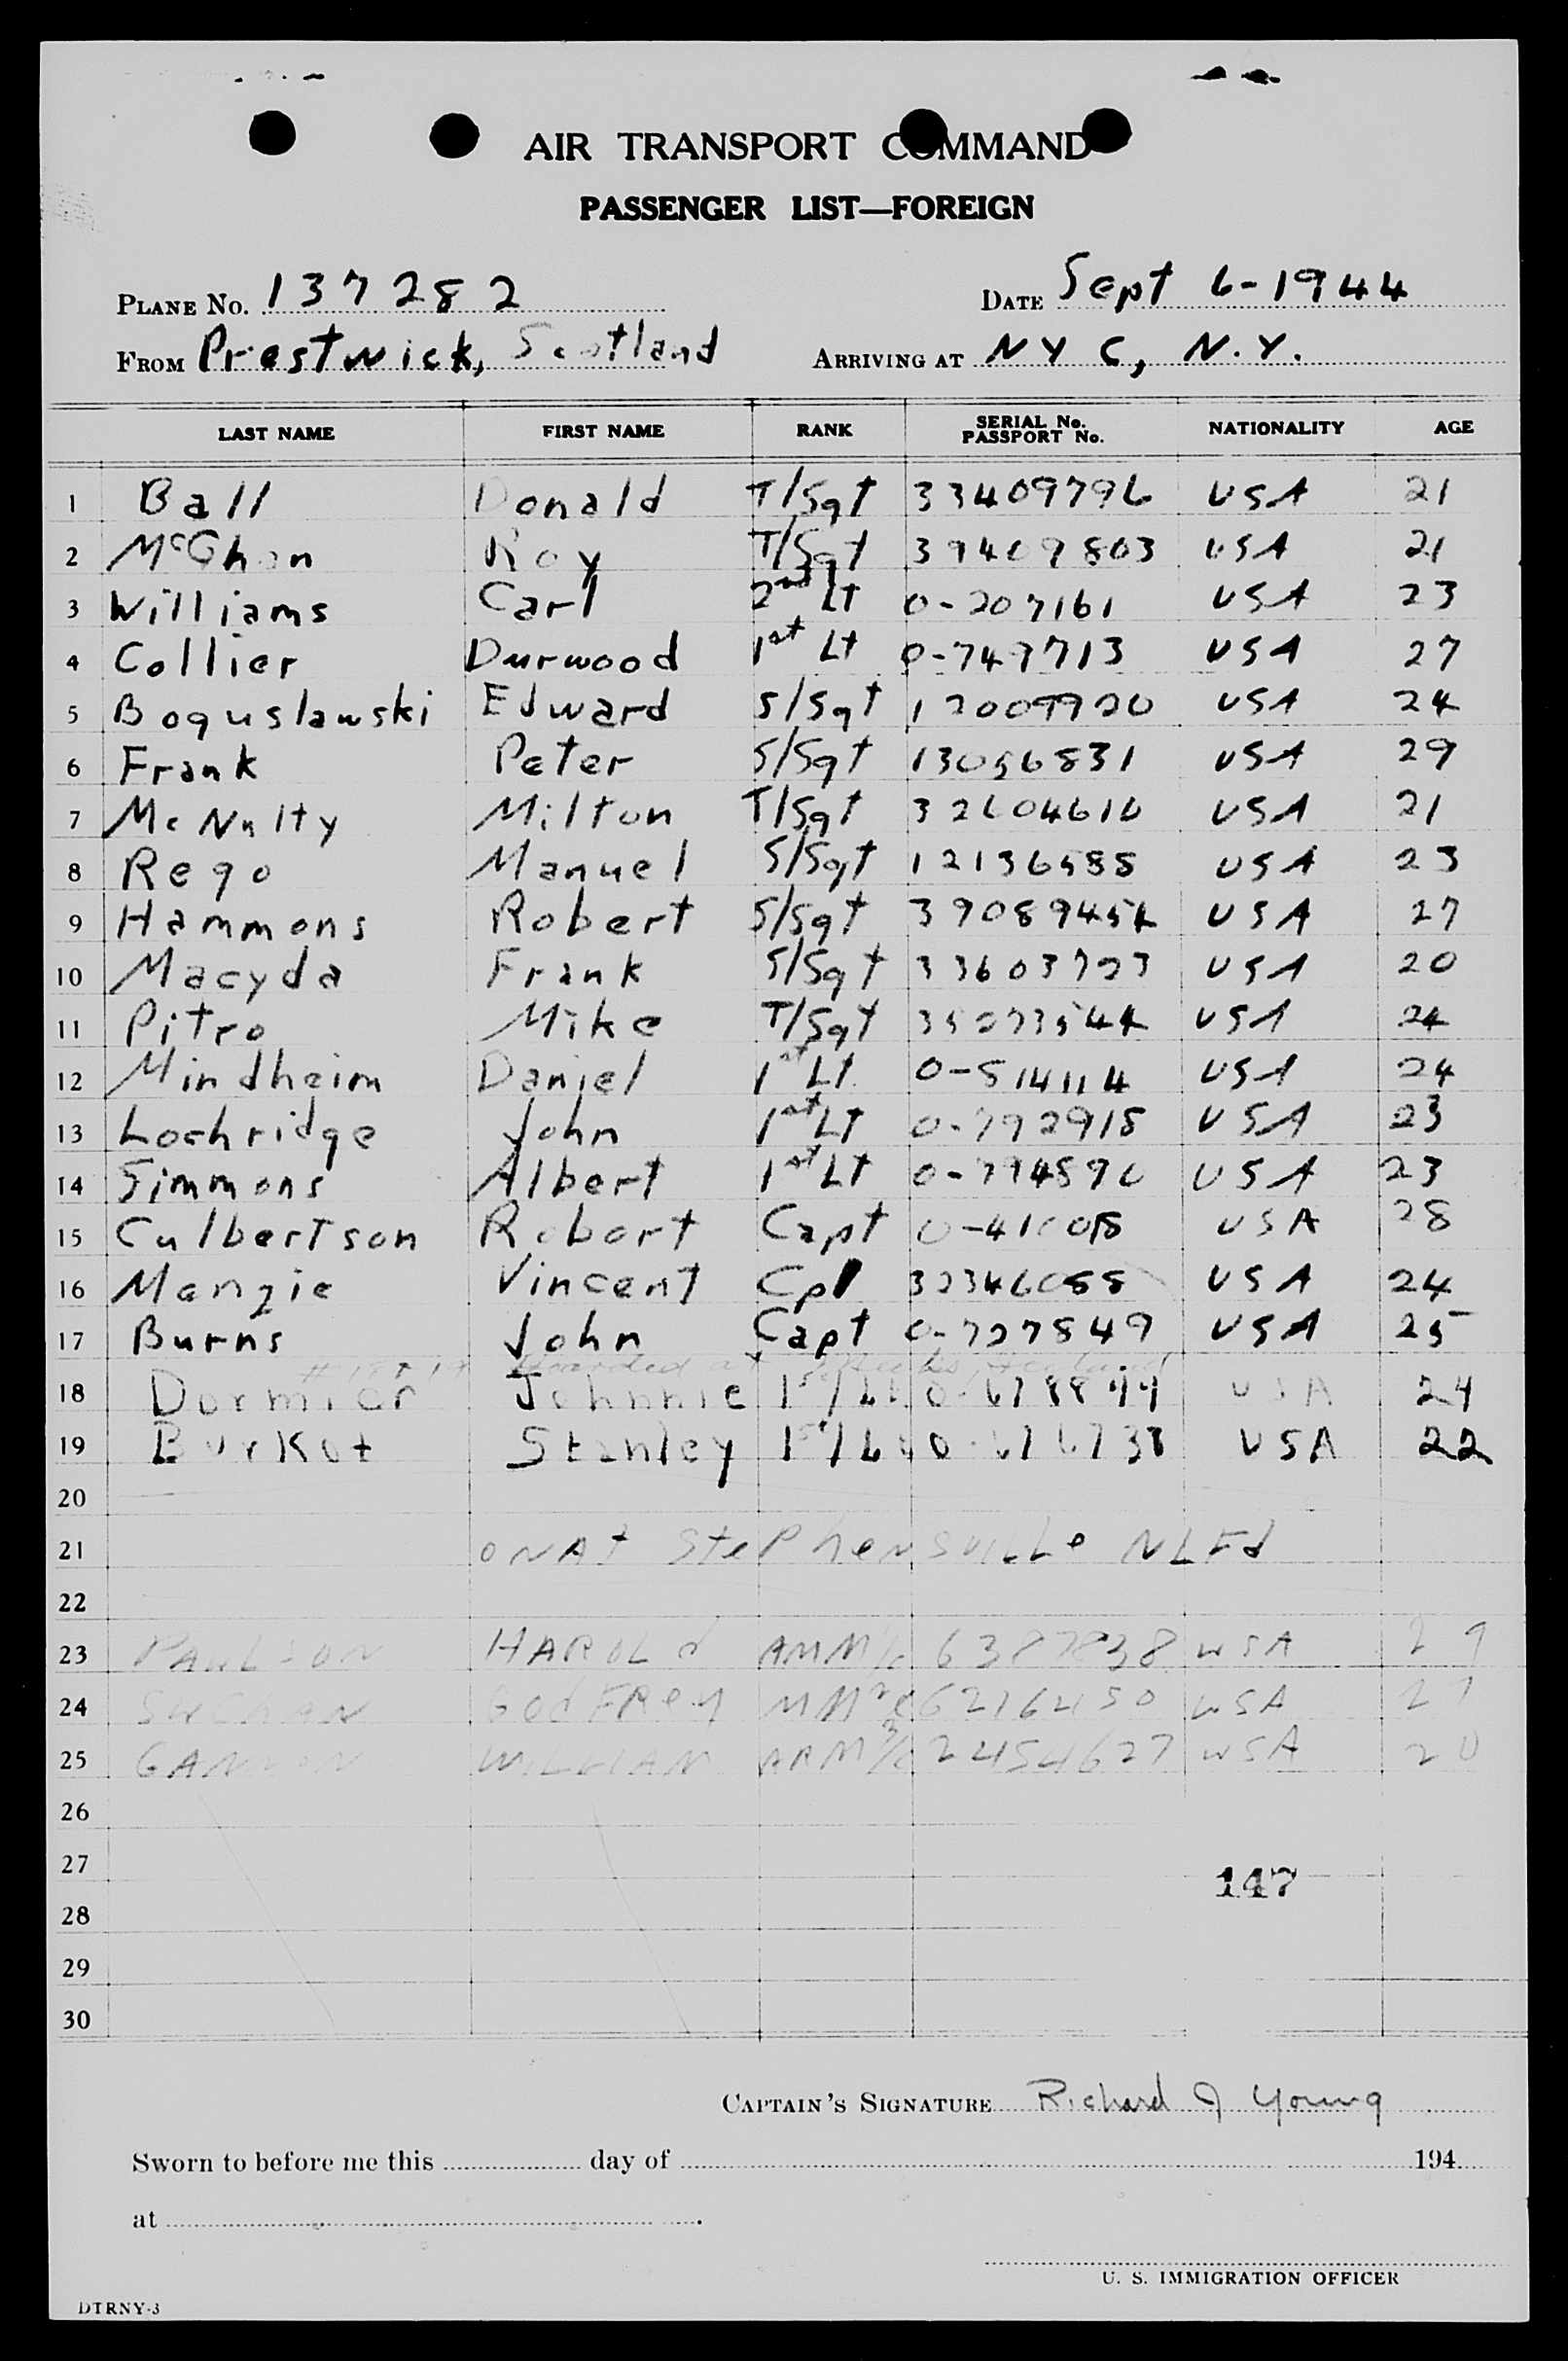 AIR TRANSPORT COMMAND
PASSENGER LIST—FOREIGN
PLANE No. 137282 DATE Sept 6-1944
FROM Prestwick, Scotland ARRIVING AT NYC, N.Y.
LAST NAME FIRST NAME RANK SERIAL No. PASSPORT No. NATIONALITY AGE
1 Ball Donald T/Sgt 33409796 USA 21
2 McGhan Roy T/Sgt 39409803 USA 21
3 Williams Carl 2nd Lt 0-207161 USA 23
4 Collier Durwood 1st Lt 0-747713 USA 27
5 Boguslawski Edward S/Sgt 12009920 USA 24
6 Frank Peter S/Sgt 13056831 USA 29
7 McNulty Milton T/Sgt 32604616 USA 21
8 Rego Manuel S/Sgt 12136588 USA 23
9 Hammons Robert S/Sgt 39089454 USA 27
10 Macyda Frank S/Sgt 33603723 USA 20
11 Pitro Mike T/Sgt 35073544 USA 24
12 Mindheim Daniel 1st Lt 0-514114 USA 24
13 Lochridge John 1st Lt 0-792918 USA 23
14 Simmons Albert 1st Lt 0-794890 USA 23
15 Culbertson Robert Capt USA 28
16 Menzie Vincent Cpl 32346088 USA 24
17 Burns John Capt 0-727849 USA 25
Boarded at
18 Dormier Johnnie 1st/Lt 0-678844 USA 24
19 Burkot Stanley 1st/Lt 0-676738 USA 22
20
21 ON At StePhensvilLe NLFd
22
23 PAULSON HAROLd AMM 6387838 USA 29
24 GOdFRey MM2c 6216450 USA
25 GANNON WILLIAM ARM3/c 2454627 USA 20
26
27
147
28
29
30
CAPTAIN'S SIGNATURE Richard J Young
Sworn to before me this day of 194
at .
U. S. IMMIGRATION OFFICER
DTRNY-3